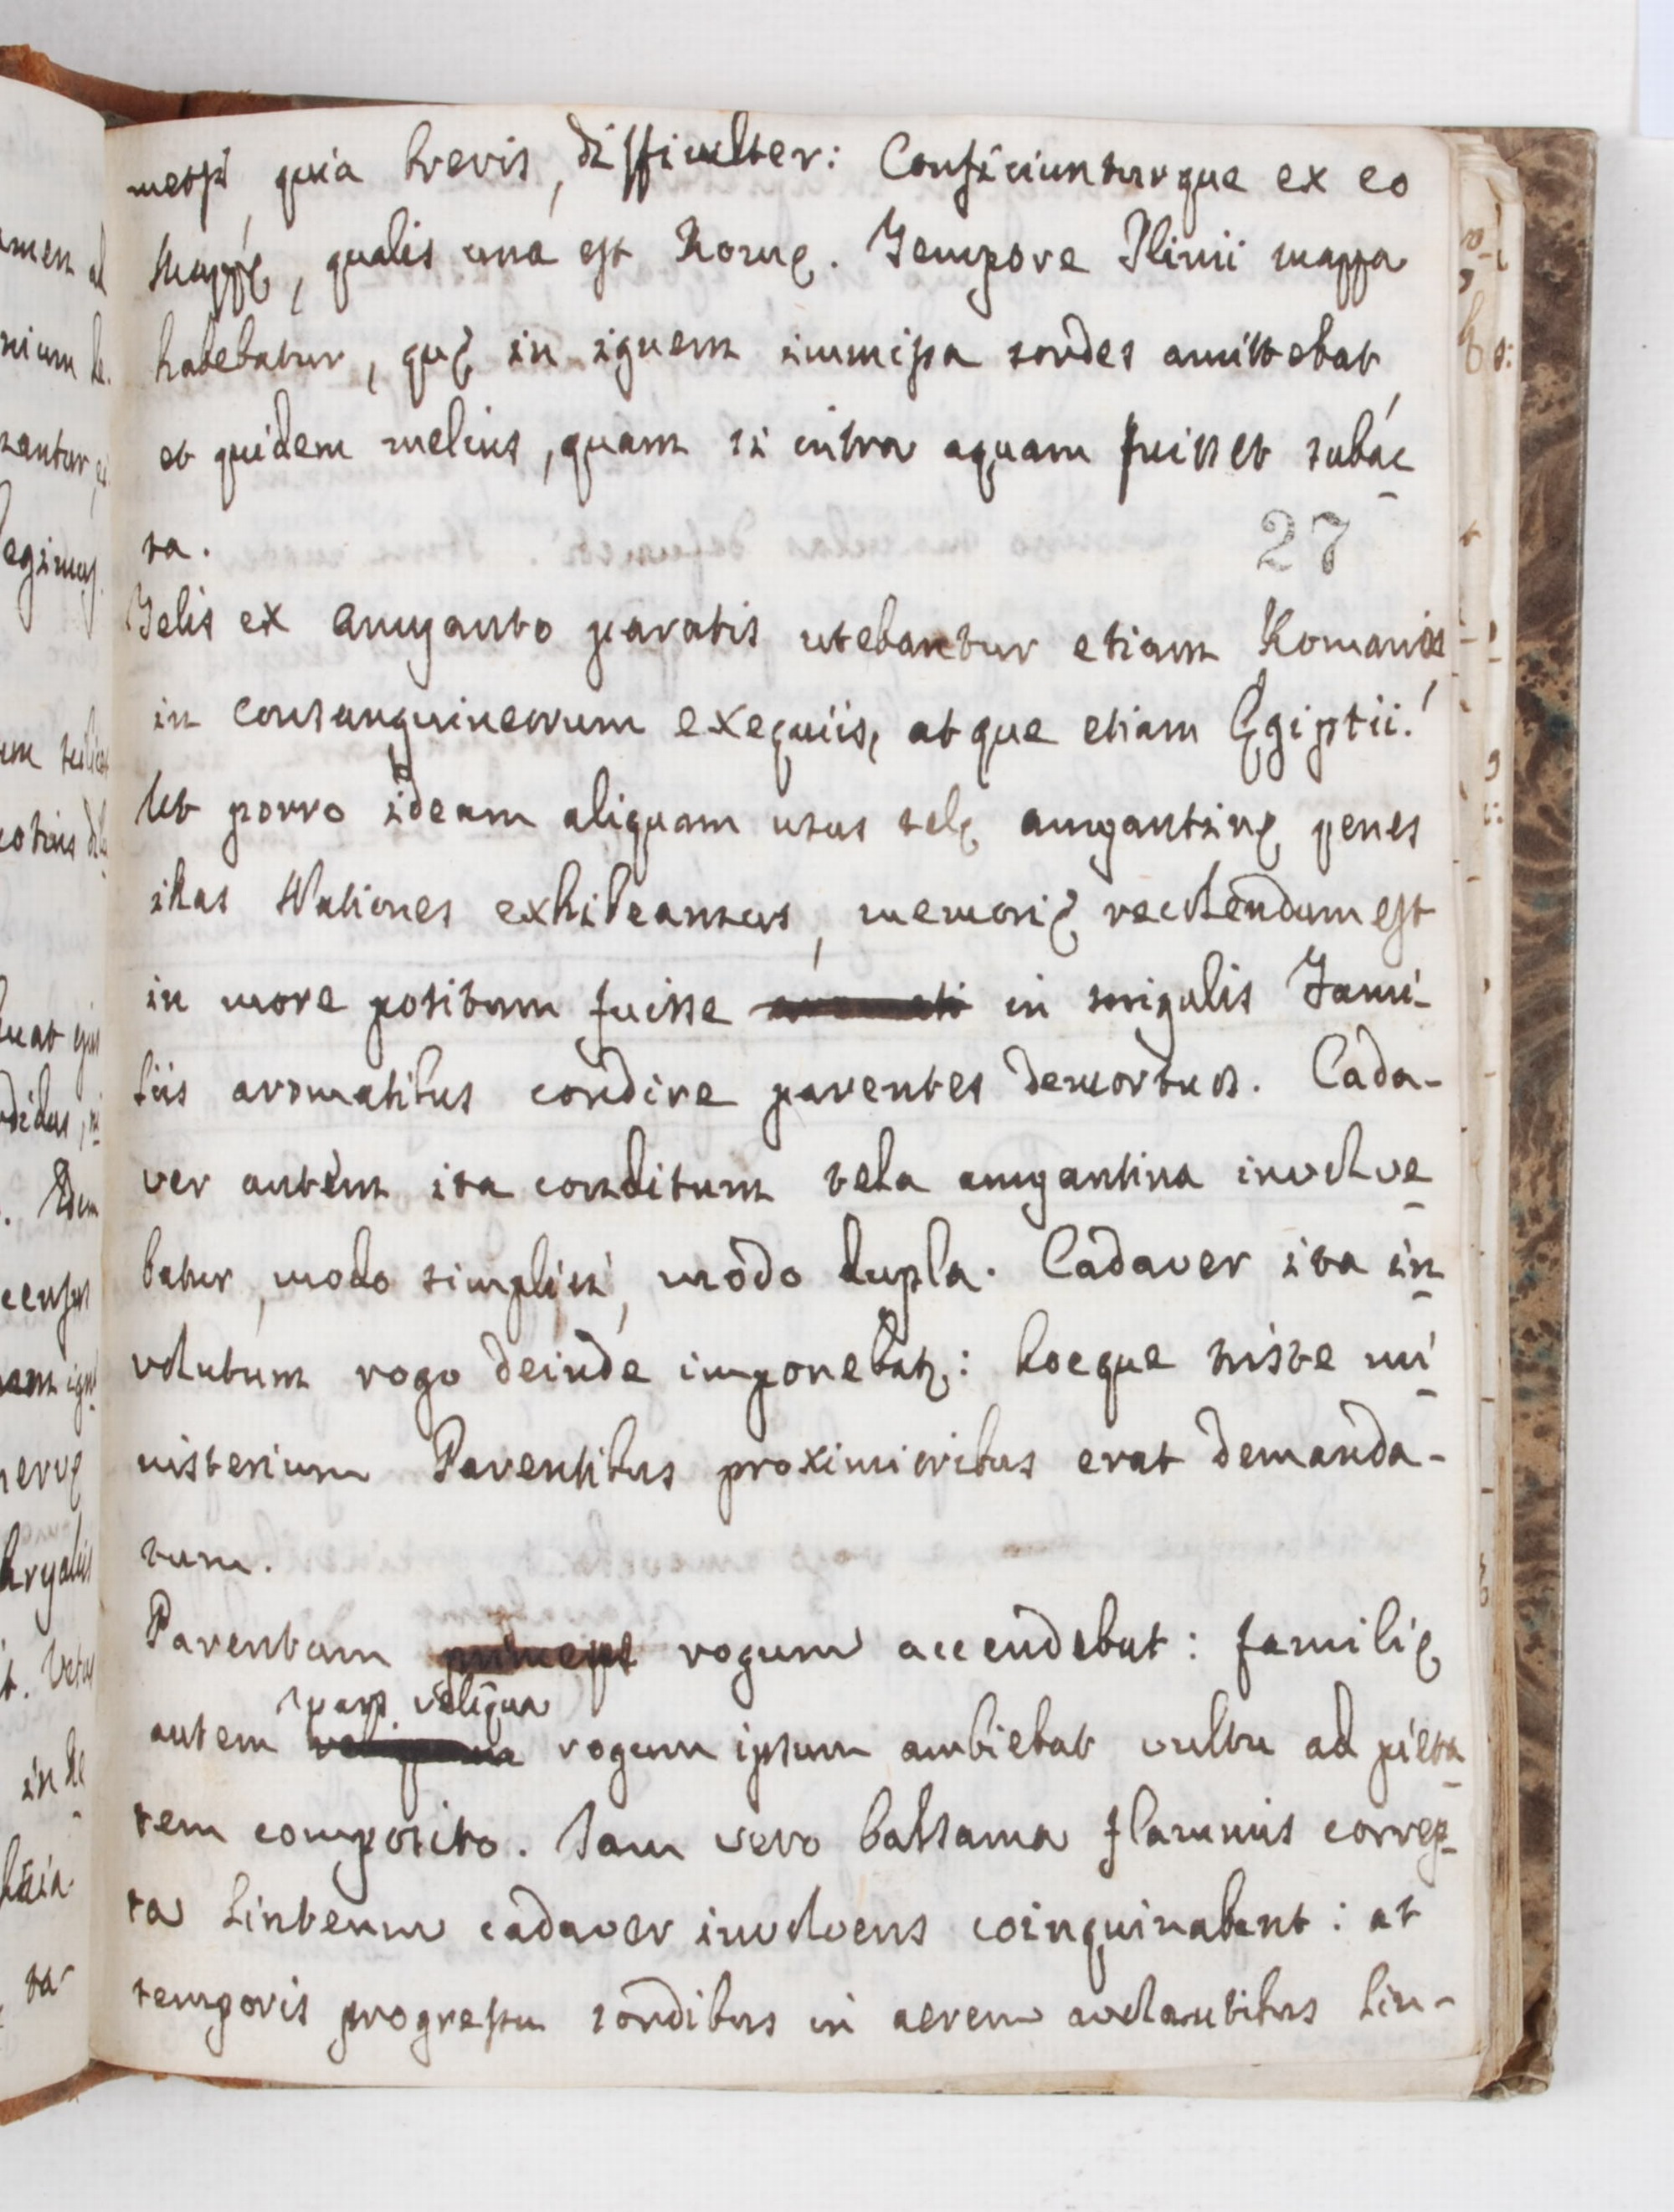 nectiʹ, quia brevis, difficulter: Conficiunturque ex eo
Mappę, qualis una est Romę. Tempore Plinii mappa
habebatur, quę in ignem immissa sordes amittebat,
et quidem melius, quam si intra aquam fuisset subac
ta.
27
Telis ex Amyanto paratis utebantur etiam Romanos
in consanguineorum exequiis, atque etiam Ęgiptii.
Ut porro ideam aliquam usus telę amyantinę penes
istas Nationes exhibeamus, memorię recolendum est
in more positum fuisse in singulis Fami-
liis aromatibus condire parentes demortuos. Cada-
ver autem ita conditum tela amyantina involve
batur, modo simplici, modo dupla. Cadaver ita in
volutum rogo deinde imponebatr: hocque triste mi
nisterium Parentibus proximioribus erat demanda-
tum.
Parentum princeps rogum accendebat: familię
pars reliqua
autem rogum ipsum ambiebat vultu ad pieta
tem composito. Iam vero balsama flammis correp-
ta linteum cadaver involvens coinquinabant: at
temporis progressu sordibus in aerem avolantibus lin-
amen al
nium le.
zantur, et
legimus